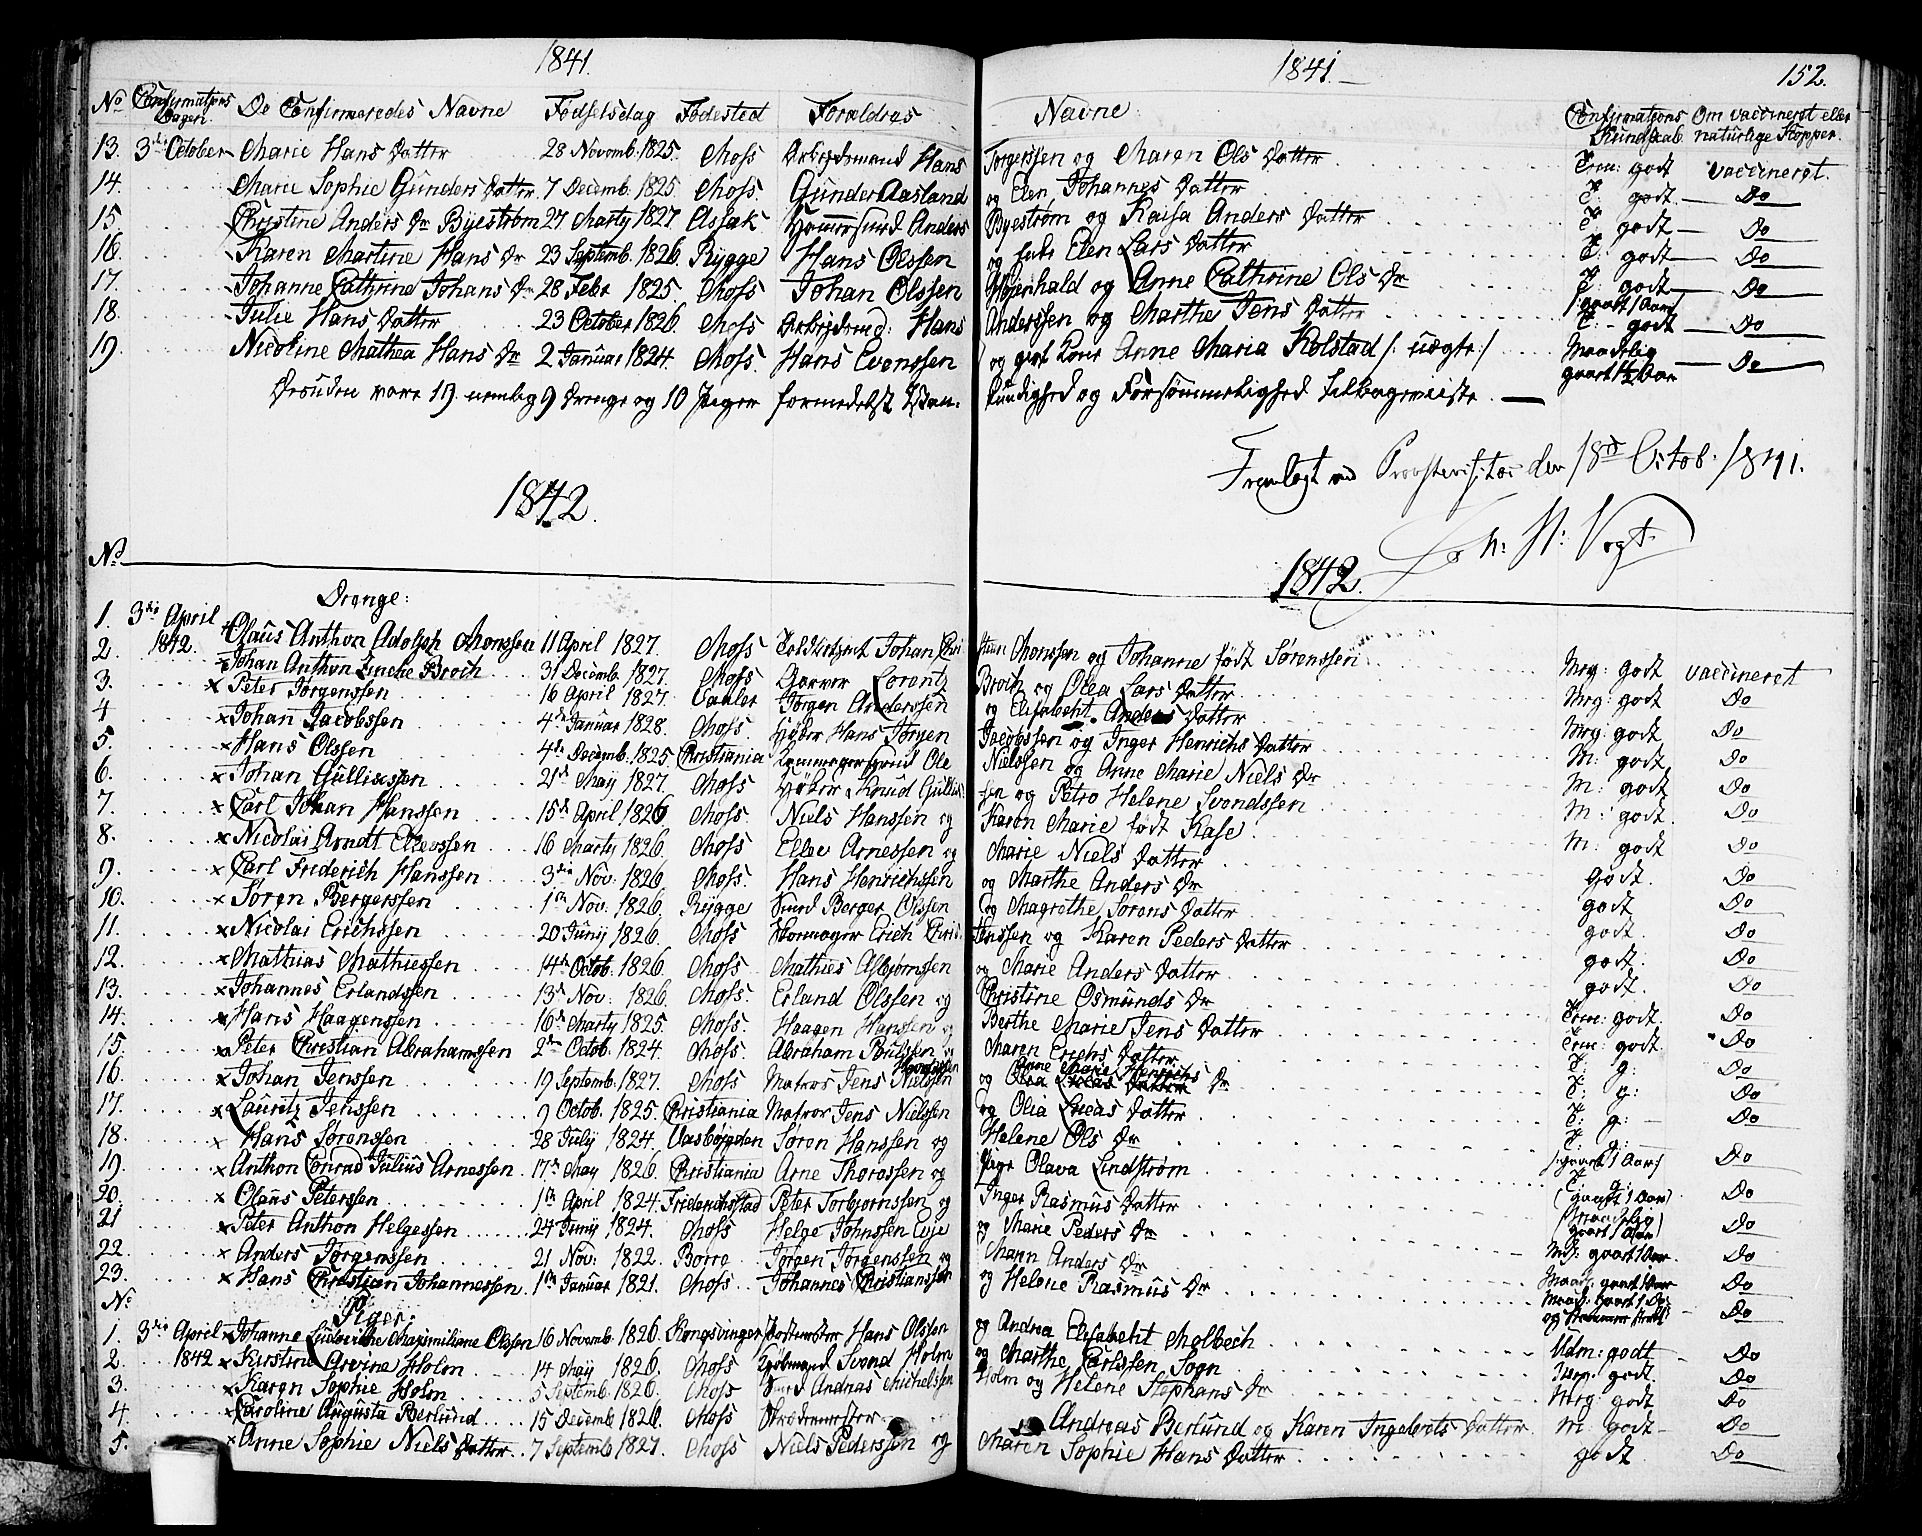 1841.
1841.
152.
No Confirmations Dagen. De Confirmeredes Navne Fødselsdag Fødested Forældres Navne Confirmations Kundskab Om vaccineret eller naturlige Kopper.
13. 3die October Marie Hans Datter 28 Novemb. 1825. Moss Arbejdsmand Hans Torgerssen og Maren Ols Datter Tem: godt vaccineret.
14. Marie Sophie Gunders Datter 7 Decemb. 1825 Moss. Gunder Aasland og Elen Johannes Datter T: godt Do
15. Christine Anders Dr Byeström 27 Marty 1827 Anders Byestrøm og Kaisa Anders Datter T: godt Do
16. Karen Martine Hans Dr 23 Septemb. 1826. Rygge Hans Olssen og Elen Lars Datter T: godt Do
17. Johanne Cathrine Johans Dr 28 Febr 1825 Moss Johan Olssen og Anne Cathrine Ols Dr T: godt Do
18. Julie Hans Datter 23 October 1826. Moss Arbejdsmd: Hans Anderssen og Marthe Jens Datter /: gaaet 1 Aar/ T: godt Do
19. Nicoline Mathea Hans Dr 2 Januar 1824. Moss. Hans Evenssen og Anne Maria Kolstad /: uægte :/ Maadelig gaaet 1½ Aar Do
Desuden vare 19. nemlig 9 Drenge og 10 Piger formedelst Uan- kundighed og Forsømmelighed tilbageviiste.
Fremlagt ved den 18d Octob: 1841.
Joh: H: Vogt
1842.
1842.
No
Drenge:
1. 3die April Claus Anthon Adolph Monssen 11 April 1827. Moss Johan Chri- stian Monssen og Johanne født Sørenssen Mrg: godt vaccineret
2. 1842. Johan Anthon Broch 31 Decemb. 1827. Moss Garver Lorentz Broch og Olea Lars Datter Mrg: godt Do
3. Peter Jørgenssen 16 April 1827. Vaaler Jørgen Anderssen og Elisabeht Anders Datter Mrg: godt Do
4 Johan Jacobssen 4de Januar 1828. Moss Høker Hans Jørgen Jacobssen og Inger Henrichs Datter M: godt Do
5. Hans Olssen 4de Decemb. 1825. Christiania Ole Nielssen og Anne Marie Niels Dr M: godt Do
6. Johan Gullixssen 21de May 1827. Moss Høker Knud Gullix- sen og Petro Helene Svendssen M: godt Do
7. Carl Johan Hanssen 15de April 1826 Moss. Niels Hanssen og Karen Marie født Kase M: godt Do
8. Nicolai Arndt Ellevssen 16 Marty 1826. Moss Ellev Arnessen og Marie Niels Datter godt. Do
9. Carl Friderich Hanssen 3die Nov: 1826 Moss. Hans Henrichssen og Marthe Anders Dr godt Do
10. Søren Bergerssen 1ste Nov. 1826. Rygge Berger Olssen og Magrethe Sørens Datter godt Do
11. Nicolai Erichssen 20 Juny 1826. Moss Skomager Erich Chris- tenssen og Karen Peders Datter godt. Do
12. Mathias Mathiessen 14de Octob. 1826. Moss Mathies Asbjørnssen og Marie Anders Datter godt. Do
13. Johannes Erlandssen 13de Nov: 1826. Moss. Erland Olssen og Christine Osmunds Dr Tem: godt. Do
14. Hans Haagenssen 16de Marty 1825. Moss. Haagen Hanssen og Berthe Marie Jens Datter Tem: godt. Do
15. Peter Christian Abrahamssen 2den Octob. 1824. Moss. Abraham Poulssen og Maren Erichs Datter T: g: Do
16. Johan Jenssen 19 Septemb. 1827. Moss Matros Jens Nielssen og Anne Marie Henrichs Dr T: g: Do
17. Lauritz Jenssen 9 Octob. 1825. Christiania Matros Jens Nielssen og Olia Lucas Datter T: g: Do
18. Hans Sørenssen 28 July 1824. Søren Hanssen og Helene Ols Dr T. g: /: gaaet 1 Aar/ Do
19. Anthon Conrad Julius Arnessen 17de May 1826. Christiania Arne Thorossen og Pige Olava Lindstrøm T: g: (gaaet 1 Aar) Do
20. Olaus Peterssen 1ste April 1824. Friderichsstad Peter Torbjørnssen og Inger Rasmus Datter /Maadelig gaaet 1 Aar/ Do
21 Peter Anthon Helgessen 24 Juny 1824. Moss Helge Johnssen Evje og Marie Peders Dr Md: gaaet 1 Aar Do
22. Anders Jørgenssen 21 Nov: 1822. Borre Jørgen Jørgenssen og Maren Anders Dr Maad: gaaet 1 Aar Do
23. Hans Christian Johannessen 1ste Januar 1821. Moss Johannes Christianssen og Helene Rasmus Dr Maad: gaaet 1 Do Do
No Piger.
1. 3die April Johanne Ludovicke Maximiliane Olssen 16 Novemb. 1826. Kongsvinger Postmester Hans Olssen og Andrea Elisabeht Molbech Udm: godt Do
2. 1842 Kirstine Arvine Holm 14 May 1826. Moss Kjøbmand Svend Holm og Marthe Carlssen Sogn Mrg: godt. Do
3. Karen Sophie Holm 5 Septemb. 1826. Moss Andreas Michelsen Holm og Helene Stephans Dr Mrg: godt Do
4. Caroline Augusta Berlund 15 Decemb 1826. Moss Skrædermester Andreas Berlund og Karen Ingebrets Datter M: godt Do
5. Anne Sophie Niels Datter 7 Septemb 1827. Moss Niels Pederssen og Maren Sophie Hans Datter godt Do